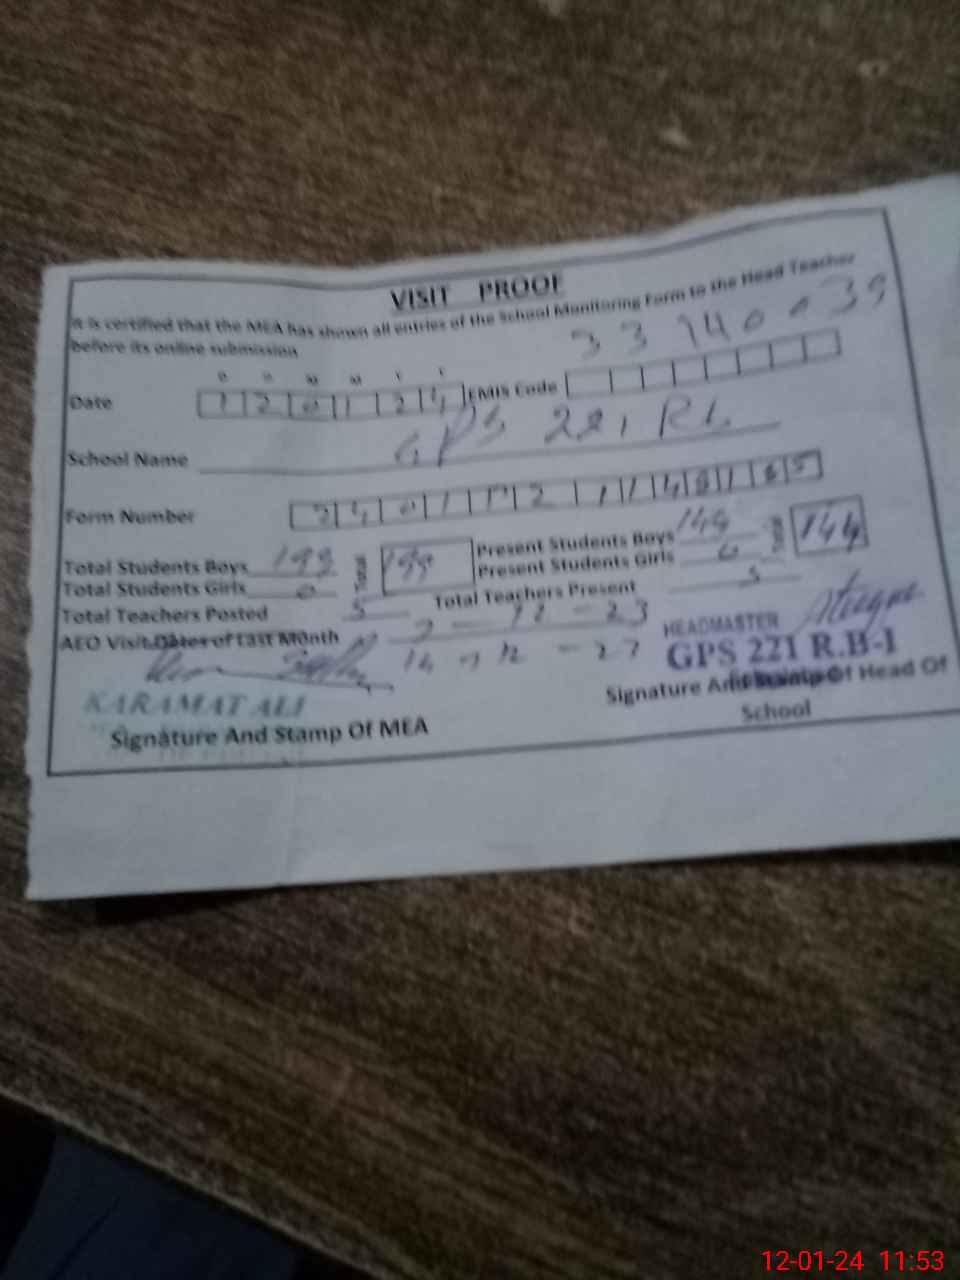 VISIT PROOF
It is certified that the MEA has shown all entries of the School Monitoring Form to the Head Teacher
before its online submission
33740039
D D M M Y Y
Date 120124 EMIS Code
School Name GPS 221 RB
Form Number
Total Students Boys 199 Total 199 Present Students Boys 144 Total 144
Total Students Girls 0 Present Students Girls 0
Total Teachers Posted 5 Total Teachers Present 5
AEO Visit Dates of Last Month 7-12-23
14-12-23
HEADMASTER
GPS 221 R.B-I
KARAMAT ALI
Signature And Stamp Of MEA
Signature And Stamp Of Head Of
School
12-01-24 11:53